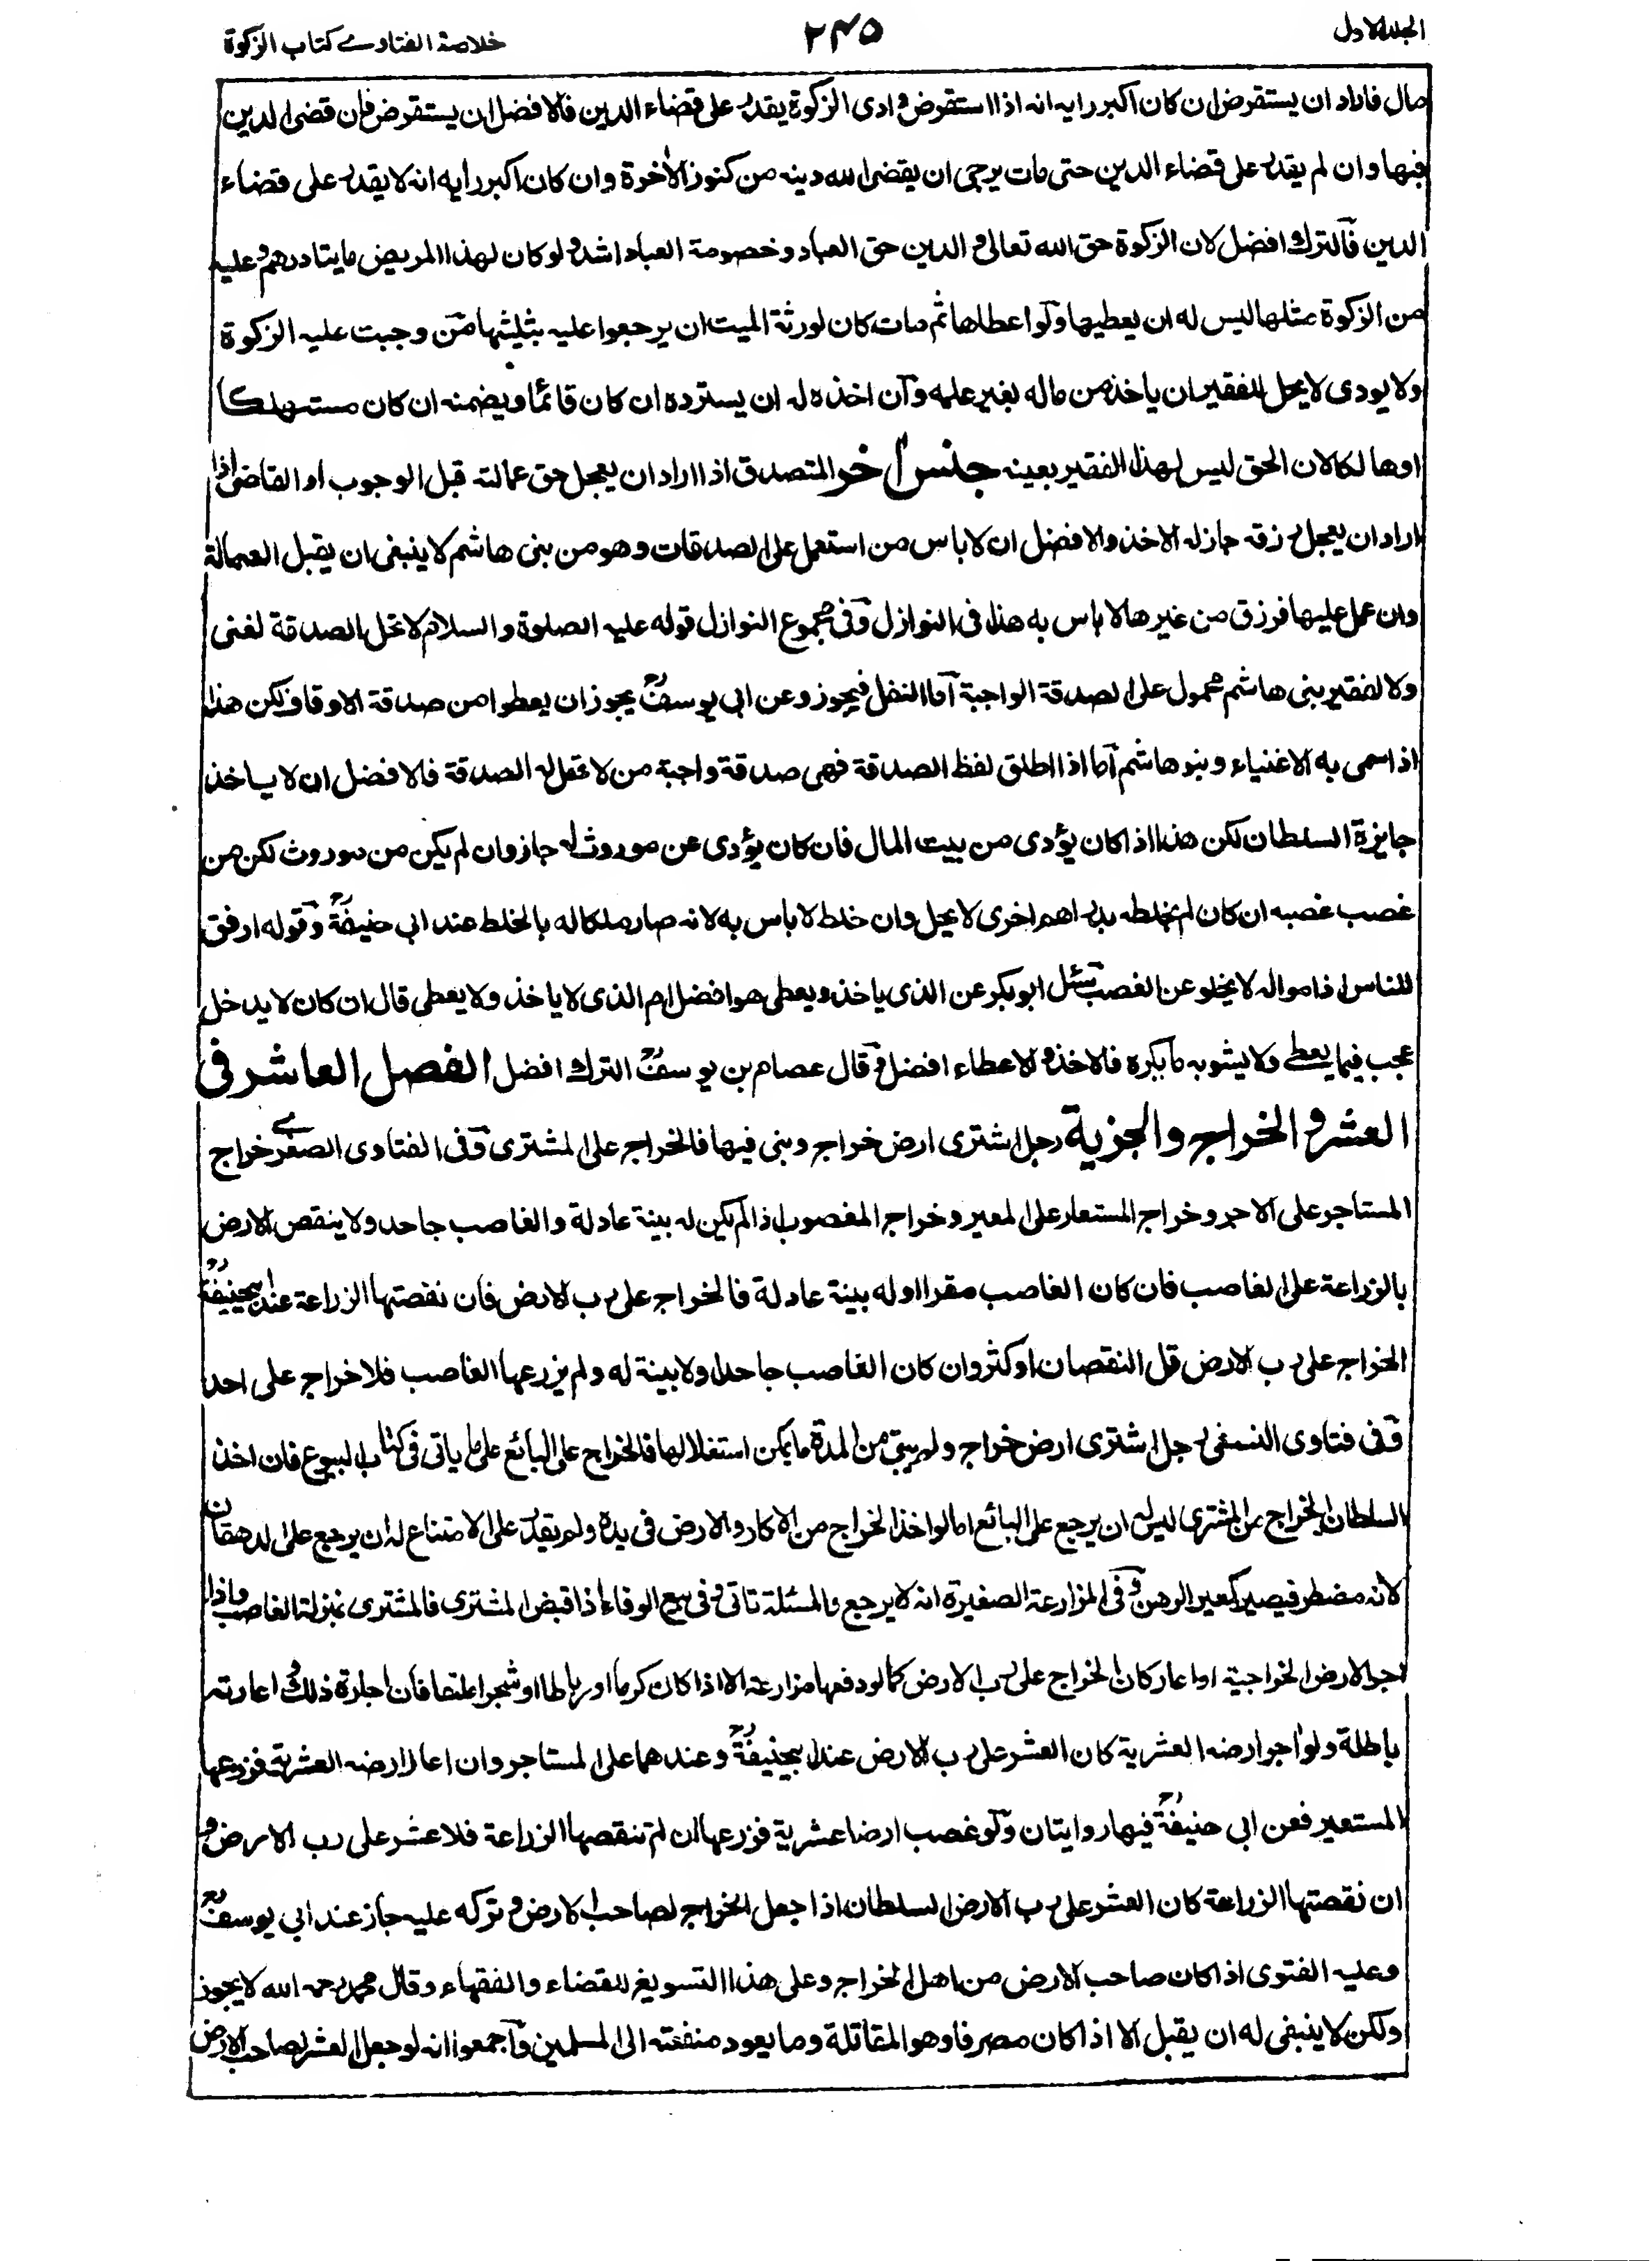 الجلد الاول
٢٣٥
خلاصة الفتاوے كتاب الزكوة
مال فاراد ان يستقرض ان كان اكبر رايه انه اذا استقرض و ادى الزكوة يقدر على قضاء الدين فالافضل ان يستقرض فان قضى الدين
فبها وان لم يقدر على قضاء الدين حتى مات يرجى ان يقضى الله دينه من كنوز الآخرة وان كان اكبر رايه انه لا يقدر على قضاء
الدين فالترك افضل لان الزكوة حق الله تعالى و الدين حق العباد وخصومة العباد اشد و لو كان لهذا المريض مايتا درهم و عليه
من الزكوة مثلها ليس له ان يعطيها ولو اعطاها ثم مات كان لورثة الميت ان يرجعوا عليه بثلثيها من وجبت عليه الزكوة
ولا يودى لا يحل للفقير ان ياخذ من ماله بغير علمه وان اخذه له ان يسترده ان كان قائما ويضمنه ان كان مستهلكا
اوهالكا لان الحق ليس لهذا الفقير بعينه جنس آخر المتصدق اذا اراد ان يعجل حق عمالته قبل الوجوب او القاضى اذا
اراد ان يعجل رزقه جاز له الاخذ والافضل ان لا باس من استعمل على الصدقات وهو من بنى هاشم لا ينبغى ان يقبل العمالة
وان عمل عليها فرزق من غيرها لا باس به هذا فى النوازل وفى مجموع النوازل قوله عليه الصلوة والسلام لا تحل الصدقة لغنى
ولا لفقير بنى هاشم محمول على الصدقة الواجبة اما النفل فيجوز وعن ابى يوسفؒ يجوز ان يعطوا من صدقة الاوقاف لكن هذا
اذا سمى به الاغنياء وبنو هاشم اما اذا اطلق لفظ الصدقة فهى صدقة واجبة من لا تحل له الصدقة فالافضل ان لا ياخذ
جايزة السلطان لكن هذا اذا كان يؤدى من بيت المال فان كان يؤدى عن موروث له جاز وان لم يكن من موروث لكن من
غصب غصبه ان كان لم يخلطه بدراهم اخرى لا يحل وان خلط لا باس به لانه صار ملكا له بالخلط عند ابى حنيفةؒ وقوله ارفق
للناس اذ امواله لا يخلو عن الغصب سئل ابو بكر عن الذى ياخذ ويعطى هو افضل ام الذى لا ياخذ ولا يعطى قال ان كان لا يدخل
عجب فيما يعطے ولا يشوبه ما يكره فالاخذ و الاعطاء افضل و قال عصام بن يوسفؒ الترك افضل الفصل العاشر فى
العشر و الخراج والجزية رجل اشترى ارض خراج وبنى فيها فالخراج على المشترى وفى الفتاوى الصغرے خراج
المستاجر على الآجر وخراج المستعار على المعير وخراج المغصوب اذا لم يكن له بينة عادلة والغاصب جاحد ولا ينقص الارض
بالزراعة على الغاصب فان كان الغاصب مقرا او له بينة عادلة فالخراج على رب الارض فان نقصتها الزراعة عند ابيحنيفةؒ
الخراج على رب الارض قل النقصان او كثر وان كان الغاصب جاحدا ولا بينة له ولم يزرعها الغاصب فلا خراج على احد
وفى فتاوى النسفى رجل اشترى ارض خراج ولم يبق من المدة ما يمكن استغلالها فالخراج على البائع على ما ياتى فى كتاب البيوع فان اخذ
السلطان الخراج من المشترى ليس له ان يرجع على البائع اما لو اخذ الخراج من الاكار والارض فى يده ولم يقدر على الامتناع له ان يرجع على الدهقان
لانه مضطر فيصير كمعير الرهن و فى المزارعة الصغيرة انه لا يرجع والمسئلة تاتى و فى بيع الوفاء اذا قبض المشترى فالمشترى بمنزلة الغاصب واذا
اجر الارض الخراجية او اعار كان الخراج على رب الارض كما لو دفعها مزارعة الا اذا كان كرما او رطابا او شجرا ملتفا فان اجارة ذلك و اعارته
باطلة ولو اجر ارضه العشرية كان العشر على رب الارض عند ابيحنيفةؒ وعندهما على المستاجر وان اعار ارضه العشرية فزرعها
المستعير فعن ابى حنيفةؒ فيها روايتان ولو غصب ارضا عشرية فزرعها ان لم تنقصها الزراعة فلا عشر على رب الارض و
ان نقصتها الزراعة كان العشر على رب الارض السلطان اذا جعل الخراج لصاحب الارض و تركه عليه جاز عند ابى يوسفؒ
وعليه الفتوى اذا كان صاحب الارض من اهل الخراج وعلى هذا التسويغ للقضاء والفقهاء وقال محمد رحمه الله لا يجوز
ولكن لا ينبغى له ان يقبل الا اذا كان مصرفا وهو المقاتلة وما يعود منفعته الى المسلمين واجمعوا انه لو جعل العشر لصاحب الارض